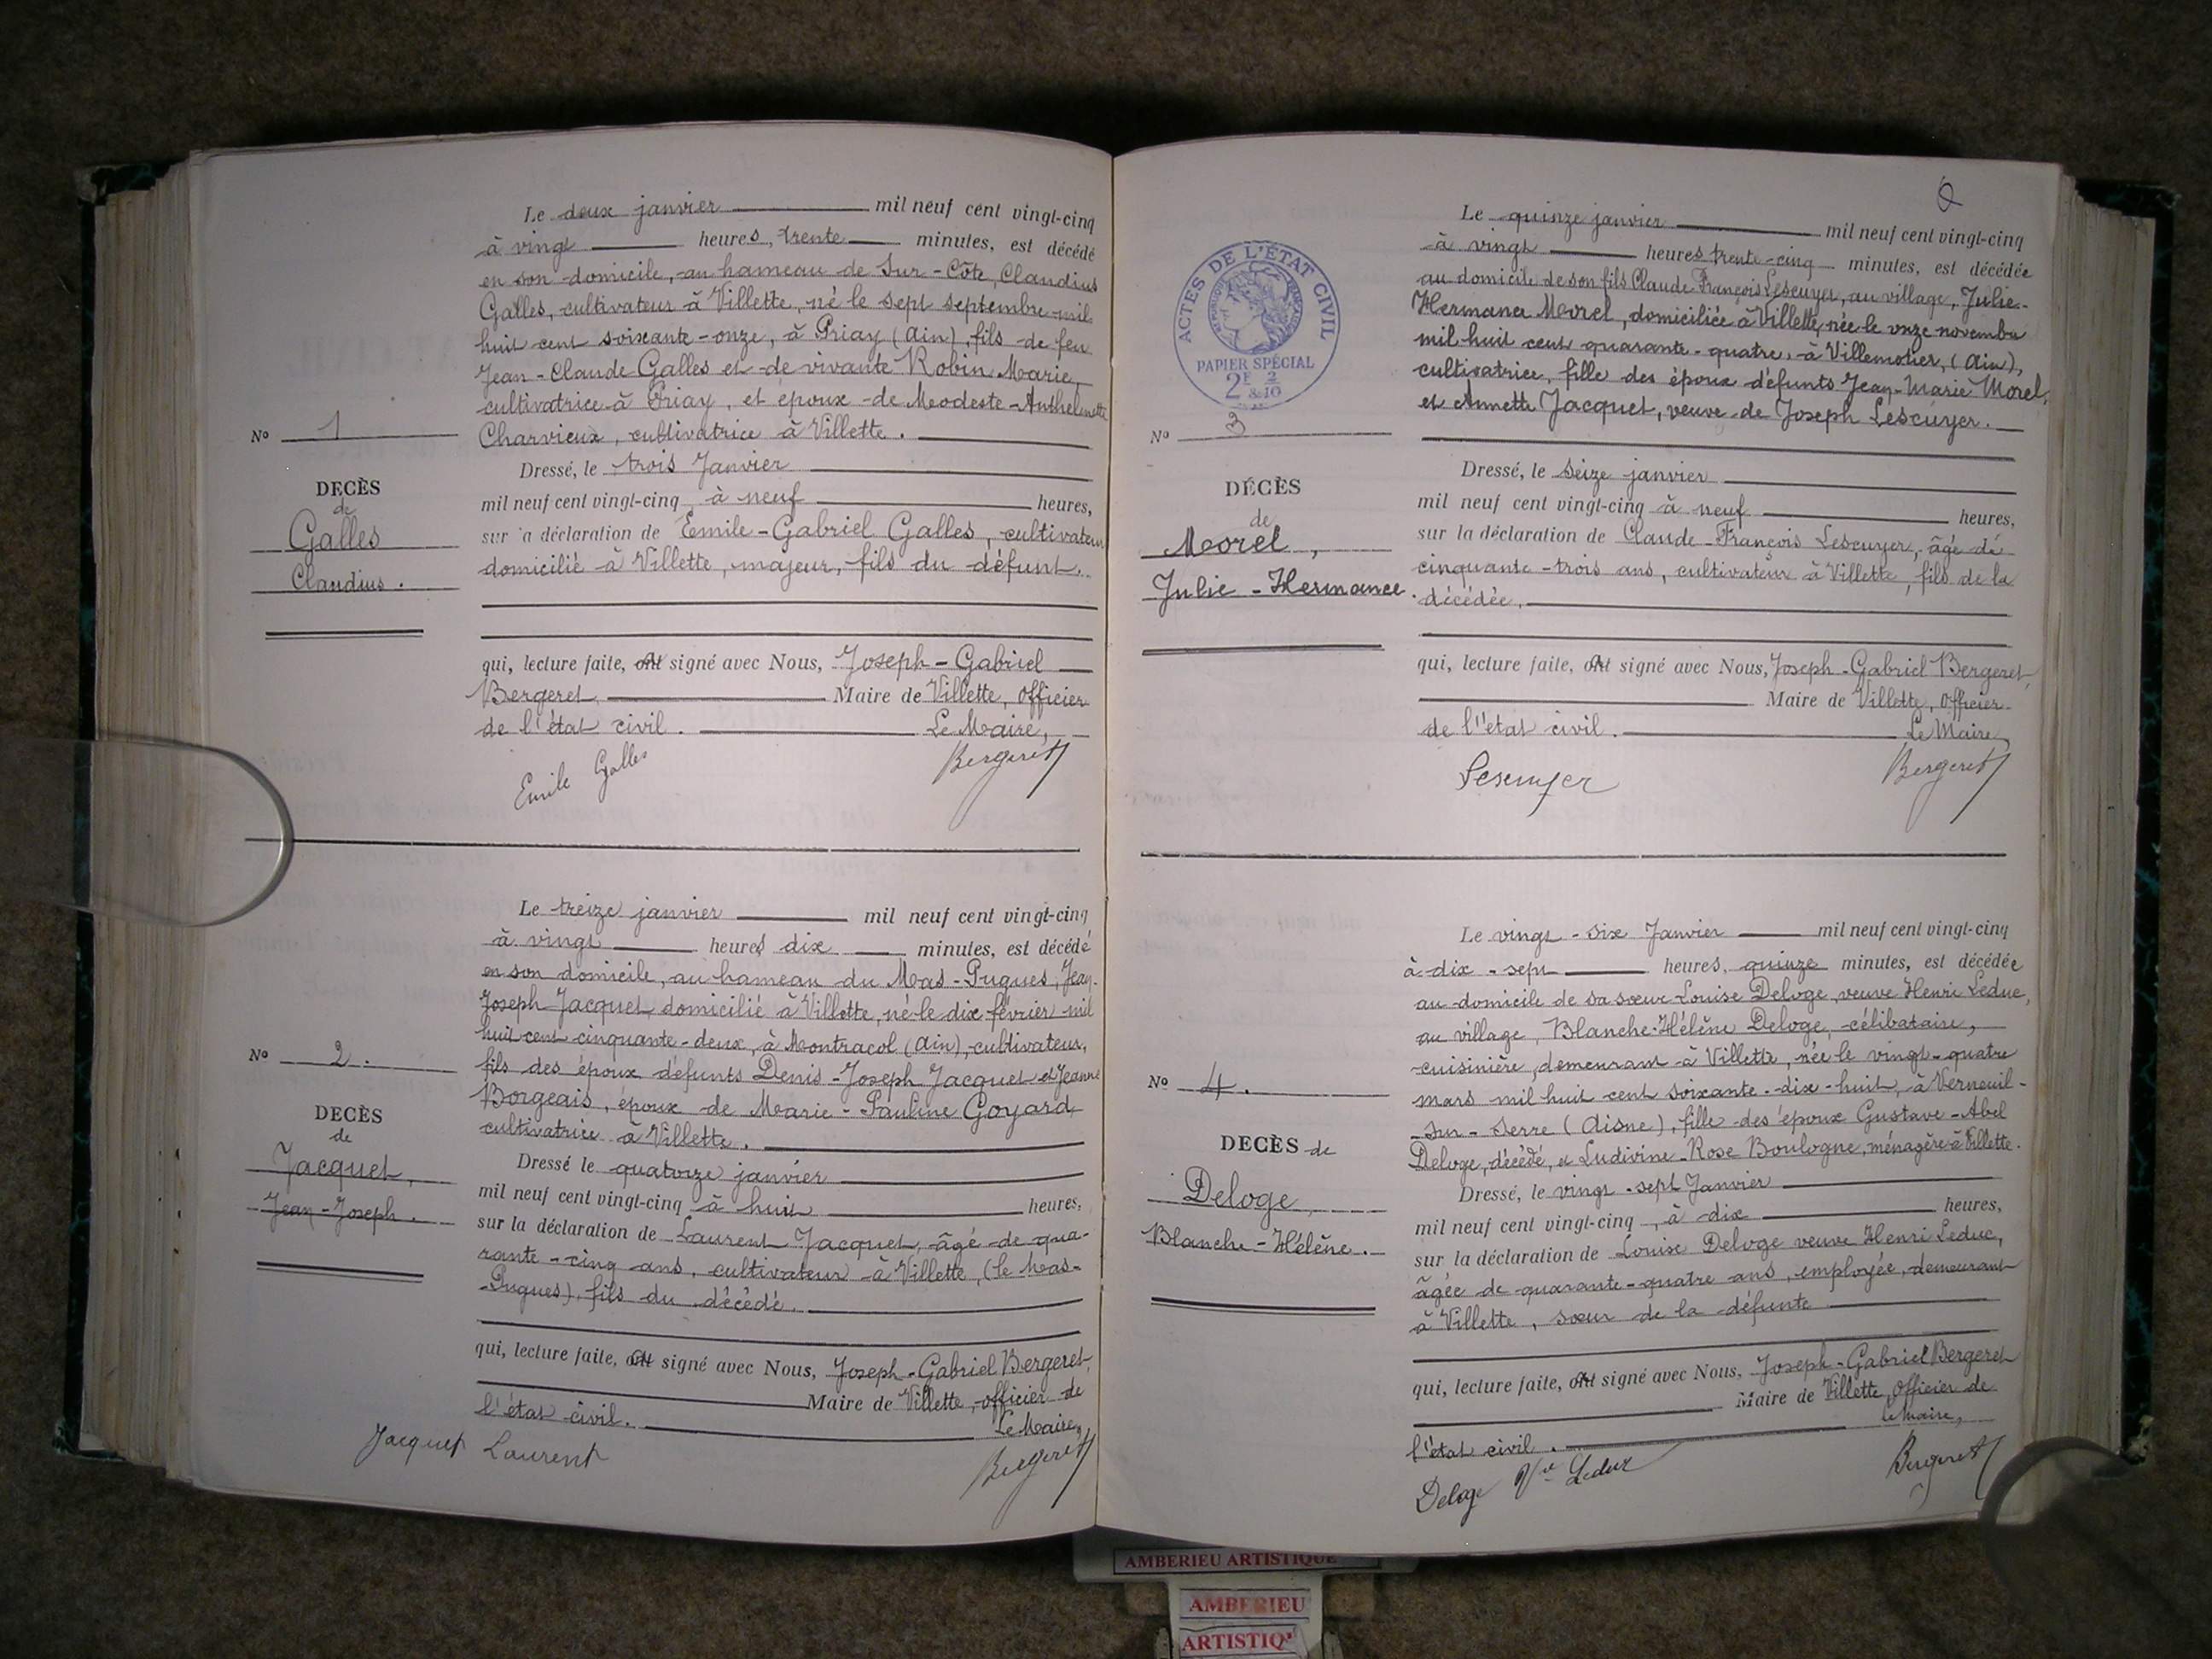 Le deux janvier mil neuf cent vingt-cinq
à vingt heures, trente minutes, est décédé
en son domicile, au hameau de Sur-Côte, Claudius
Galles, cultivateur à Villette, né le sept septembre mil
huit cent soixante-onze, à Priay (Ain), fils de feu
Jean-Claude Galles et de vivante Robin Marie,
cultivatrice à Priay, et époux de Modeste-Anthelmette
Charvieux, cultivatrice à Villette.
No 1
Dressé, le trois Janvier
DECÈS
mil neuf cent vingt-cinq à neuf heures,
de
Galles
Claudius.
sur a déclaration de Emile-Gabriel Galles, cultivateur
domicilié à Villette, majeur, fils du défunt.
qui, lecture faite, signé avec Nous, Joseph-Gabriel
Bergeret, Maire de Villette, officier
de l'état civil. Le Maire,
Emile Galles Bergeret
Le treize janvier mil neuf cent vingt-cinq
à vingt heures dix minutes, est décédé
en son domicile, au hameau du Mas-Pugues, Jean-
Joseph Jacquet domicilié à Villette, né le dix février mil
huit cent cinquante-deux, à Montracol (Ain), cultivateur,
No 2.
fils des époux défunts Denis-Joseph Jacquet et Jeanne
Borgeais, époux de Marie-Pauline Goyard,
cultivatrice à Villette.
DECÈS
de
Jacquet,
Jean-Joseph.
Dressé le quatorze janvier
mil neuf cent vingt-cinq à huit heures,
sur la déclaration de Laurent Jacquet, âgé de qua-
rante-cinq ans, cultivateur à Villette, (le Mas-
-Pugues), fils du décédé.
qui, lecture faite, signé avec Nous, Joseph-Gabriel Bergeret,
Maire de Villette, officier de
l'état civil. Le Maire,
Jacquet Laurent Bergeret
ACTES DE L'ÉTAT CIVIL
PAPIER SPÉCIAL
2F 2/10
&
Le quinze janvier mil neuf cent vingt-cinq
à vingt heures trente-cinq minutes, est décédée
au domicile de son fils Claude-François Lescuyer, au village, Julie-
Hermance Morel, domiciliée à Villette, née le onze novembre
mil huit cent quarante-quatre, à Villemotier, (Ain),
cultivatrice, fille des époux défunts Jean-Marie Morel,
et Annette Jacquet, veuve de Joseph Lescuyer.
No 3
DÉCÈS
de
Morel,
Julie-Hermance.
Dressé, le seize janvier
mil neuf cent vingt-cinq à neuf heures,
sur la déclaration de Claude-François Lescuyer, âgé de
cinquante-trois ans, cultivateur à Villette, fils de la
décédée.
qui, lecture faite, signé avec Nous, Joseph-Gabriel Bergeret,
Maire de Villette, officier
de l'état civil. Le Maire,
Lescuyer Bergeret
Le vingt-six Janvier mil neuf cent vingt-cinq
à dix-sept heures, quinze minutes, est décédée
au domicile de sa sœur Louise Deloge, veuve Henri Leduc,
au village, Blanche-Hélène Deloge, célibataire,
cuisinière, demeurant à Villette, née le vingt-quatre
mars mil huit cent soixante-dix-huit, à Verneuil-
-sur-Serre (Aisne), fille des époux Gustave-Abel
Deloge, décédé, et Ludivine-Rose Boulogne, ménagère à Villette.
No 4.
DECÈS de
Deloge,
Blanche-Hélène.
Dressé, le vingt-sept Janvier
mil neuf cent vingt-cinq, à dix heures,
sur la déclaration de Louise Deloge veuve Henri Leduc,
âgée de quarante-quatre ans, employée, demeurant
à Villette, sœur de la défunte
qui, lecture faite, signé avec Nous, Joseph-Gabriel Bergeret
Maire de Villette, officier de
l'état civil. Le Maire,
Deloge Vve Leduc Bergeret
AMBERIEU ARTISTIQUE
AMBERIEU
ARTISTIQ